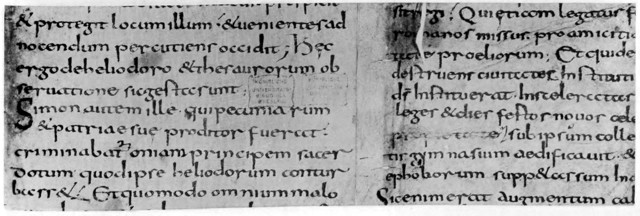 & protegit locum illum · & uenientes ad
nocendum percutiens occidit ; Hęc
ergo de heliodoro & thesaurorum ob
seruatione sic gesta sunt :
Simon autem ille qui pecuniarum
& patriae sue proditor fuerat ·
criminabatr oniam principem sacer
dotum quod ipse heliodorum contur
bass& ; Et quomodo omnium malo
Qui etiam legatus
romanos missus pro amiciti
proeliorum ; Et quide
destruens ciuitates Instituti
Instituerat · In sceleratas
leges & dies festos nouos cele
sub ipsum colle
gimnasium aedificauit · &
ephoborum In
Sic enim erat augmentum ca